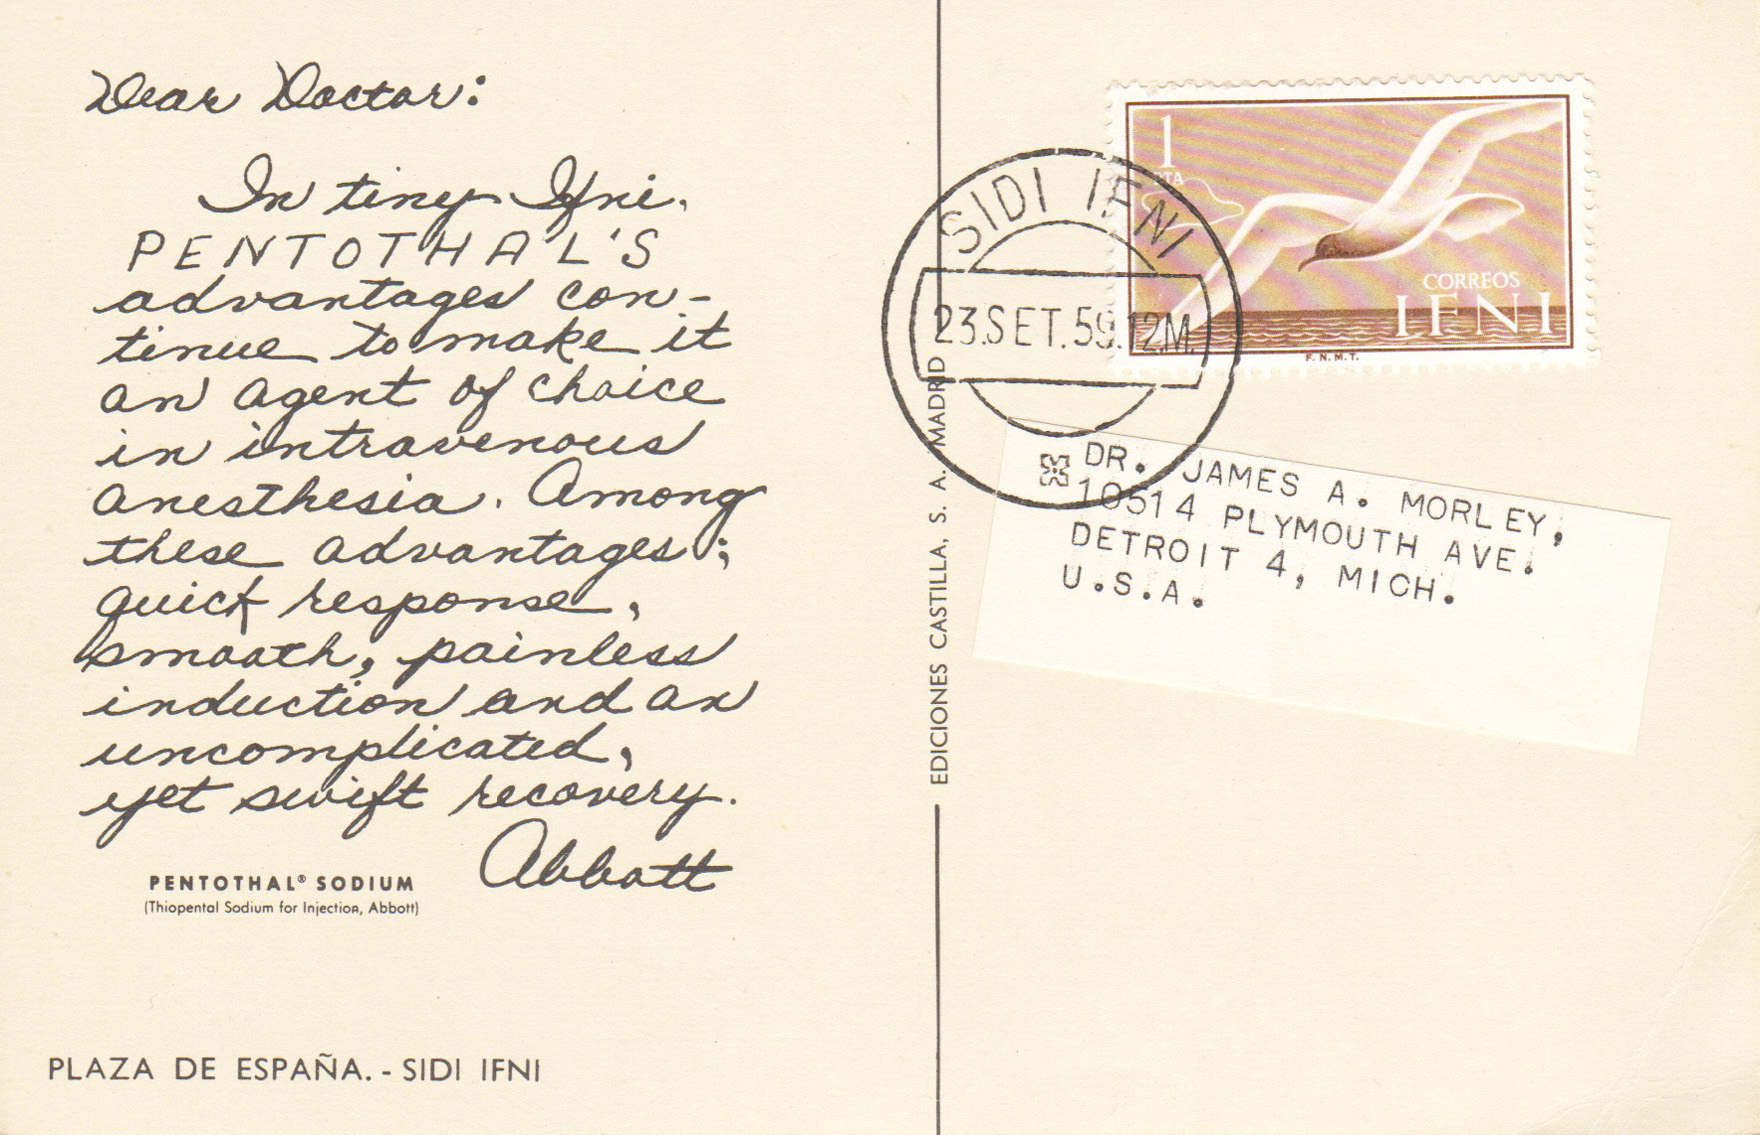 Dear Doctor:
In tiny Ifni,
PENTOTHAL'S
advantages con-
tinue to make it
an agent of choice
in intravenous
anesthesia. Among
these advantages;
quick response,
smooth, painless
induction and an
uncomplicated,
yet swift recovery.
Abbott
PENTOTHAL® SODIUM
(Thiopental Sodium for Injection, Abbott)
PLAZA DE ESPAÑA. - SIDI IFNI
EDICIONES CASTILLA, S. A. MADRID
SIDI IFNI
23.SET.59.12M.
1
PTA
CORREOS
IFNI
F.N.M.T.
DR. JAMES A. MORLEY,
10514 PLYMOUTH AVE.
DETROIT 4, MICH.
U.S.A.